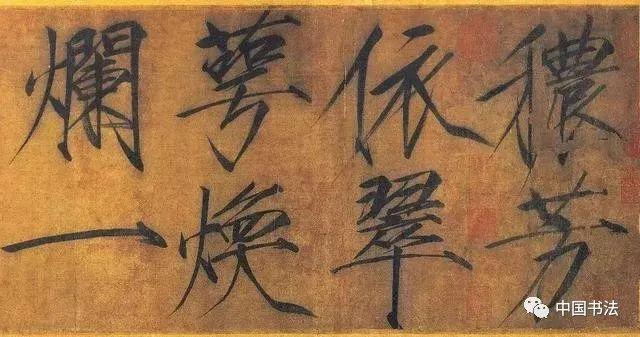 穠芳
依翠
萼煥
爛一
中国书法